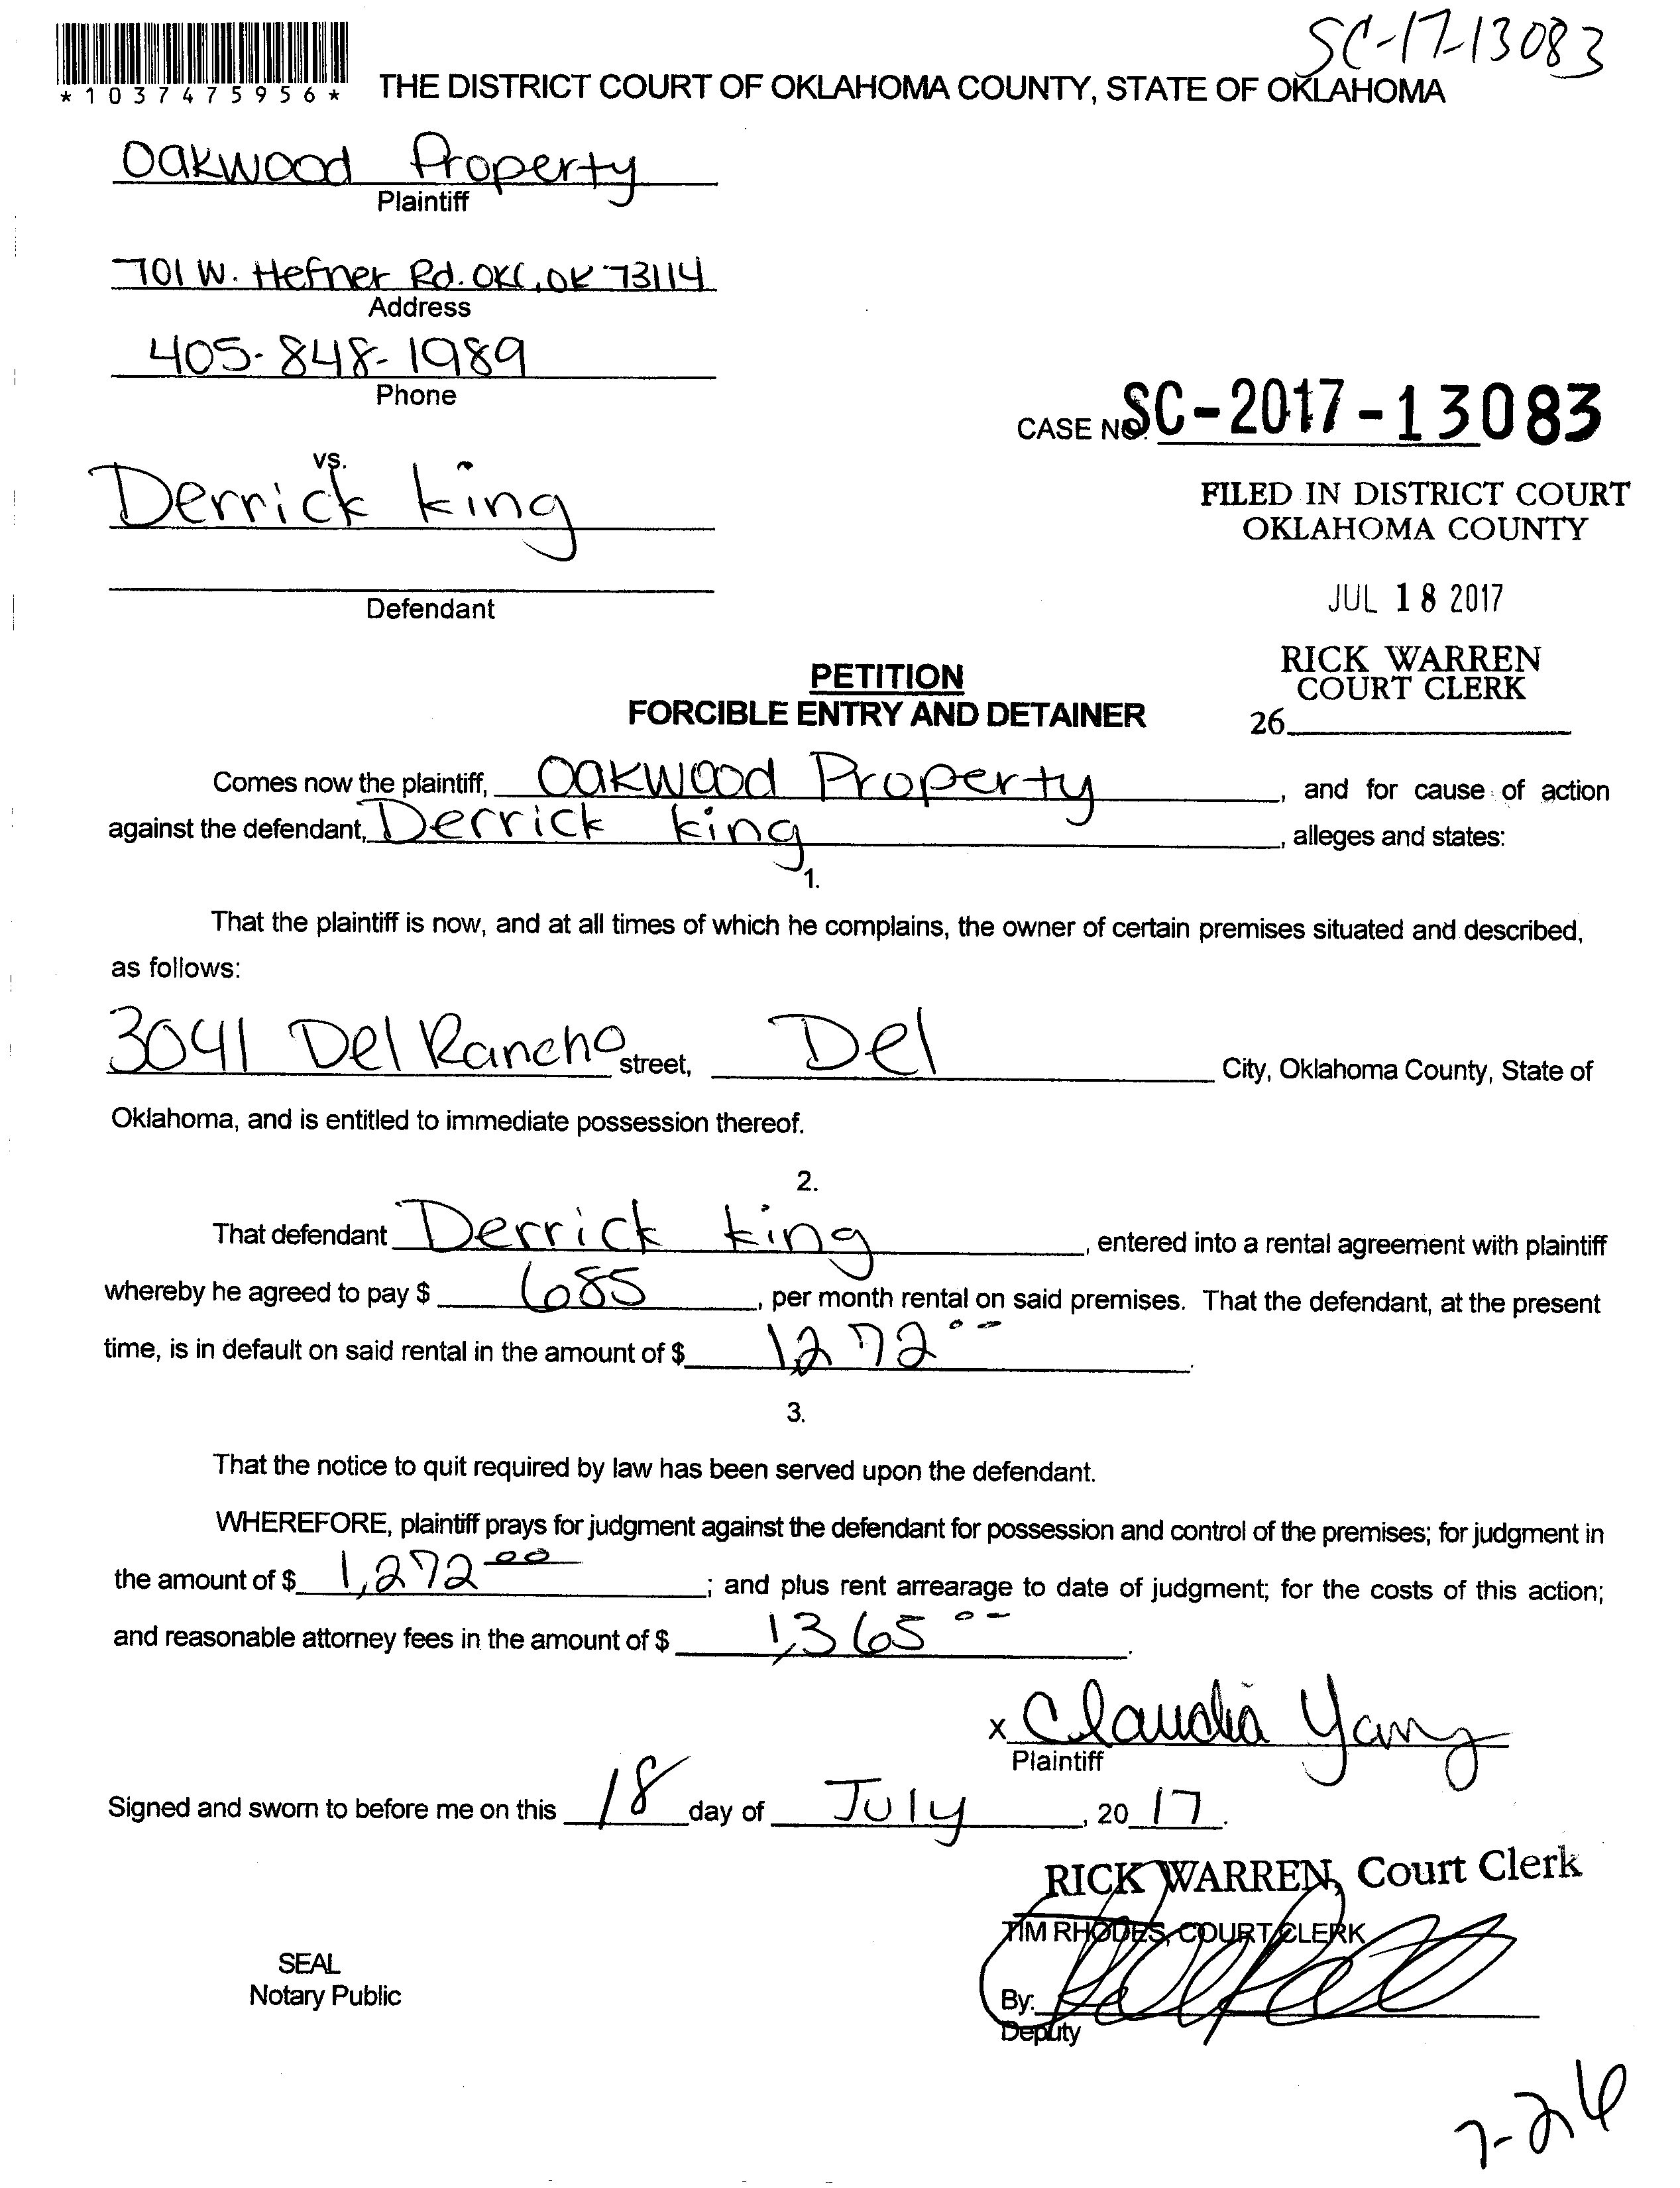 SC-17-13083
*1037475956*
THE DISTRICT COURT OF OKLAHOMA COUNTY, STATE OF OKLAHOMA
Oakwood Property
Plaintiff
701 W. Hefner Rd. OKC, OK 73114
Address
405-848-1989
Phone
CASE NO. SC-2017-13083
vs.
Derrick King
Defendant
FILED IN DISTRICT COURT
OKLAHOMA COUNTY
JUL 18 2017
RICK WARREN
COURT CLERK
26
PETITION
FORCIBLE ENTRY AND DETAINER
Comes now the plaintiff, Oakwood Property, and for cause of action
against the defendant, Derrick King, alleges and states:
1.
That the plaintiff is now, and at all times of which he complains, the owner of certain premises situated and described,
as follows:
3041 Del Rancho street, Del City, Oklahoma County, State of
Oklahoma, and is entitled to immediate possession thereof.
2.
That defendant Derrick King, entered into a rental agreement with plaintiff
whereby he agreed to pay $ 685, per month rental on said premises. That the defendant, at the present
time, is in default on said rental in the amount of $ 1272 00.
3.
That the notice to quit required by law has been served upon the defendant.
WHEREFORE, plaintiff prays for judgment against the defendant for possession and control of the premises; for judgment in
the amount of $ 1,272 00; and plus rent arrearage to date of judgment; for the costs of this action;
and reasonable attorney fees in the amount of $ 1,365 00.
x Claudia Yang
Plaintiff
Signed and sworn to before me on this 18 day of July, 20 17.
RICK WARREN, Court Clerk
TIM RHODES, COURT CLERK
SEAL
Notary Public
By:
Deputy
7-26